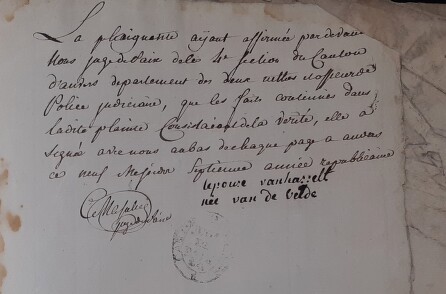 La plaignante ayant affirmée pardevant
Nous juge de paix de la 4e section du Canton
d'anvers departement des deux nethes et officier de
Police judiciaire, que les faits contenues dans
ladite plainte Consistaient de la verité, elle a
signée avec nous au bas de chaque page a anvers
ce neuf Messidor Septieme année republicaine
lepouse vanhasselt
née van de velde
juge de paix